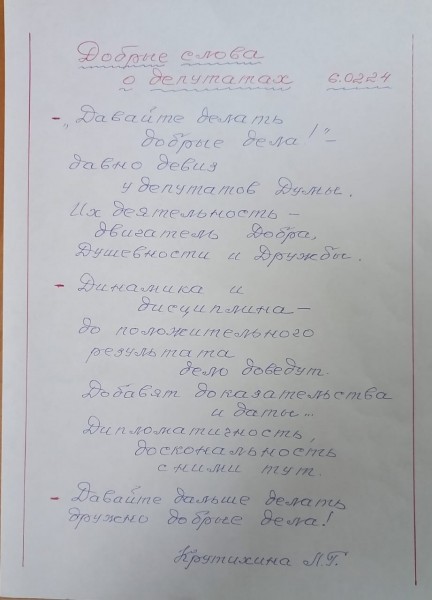 Добрые слова
о депутатах 6.02.24
- „Давайте делать
добрые дела!" -
давно девиз
у депутатов Думы.
Их деятельность -
двигатель Добра,
Душевности и Дружбы.
- Динамика и
дисциплина -
до положительного
результата
дело доведут.
Добавят доказательства
и даты...
Дипломатичность,
доскональность
с ними тут.
- Давайте дальше делать
дружно добрые дела!
Крутихина Л.Г.